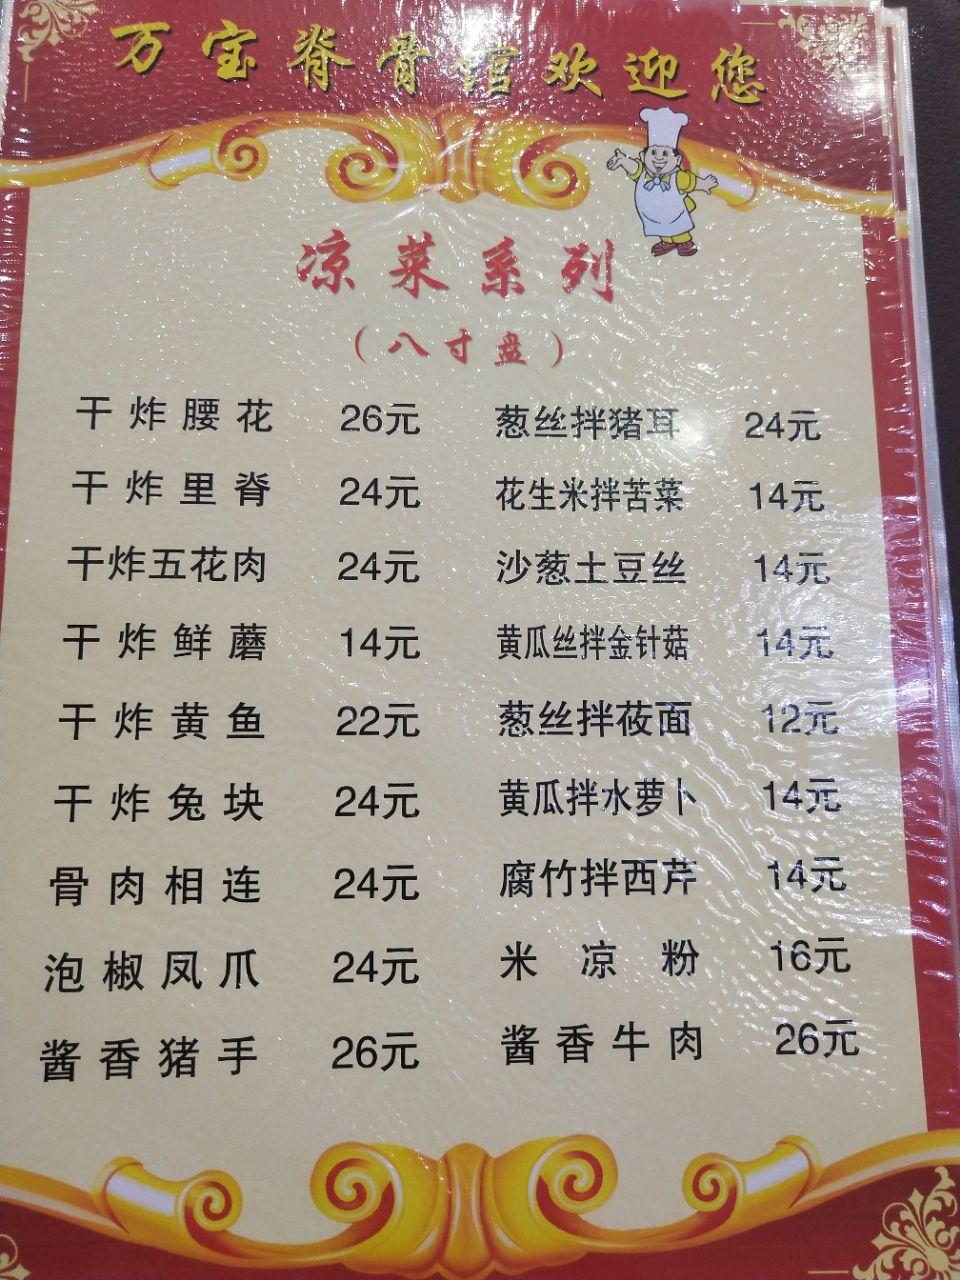 万宝脊骨馆欢迎您
凉菜系列
（八寸盘）
干炸腰花 26元 葱丝拌猪耳 24元
干炸里脊 24元 花生米拌苦菜 14元
干炸五花肉 24元 沙葱土豆丝 14元
干炸鲜蘑 14元 黄瓜丝拌金针菇 14元
干炸黄鱼 22元 葱丝拌莜面 12元
干炸兔块 24元 黄瓜拌水萝卜 14元
骨肉相连 24元 腐竹拌西芹 14元
泡椒凤爪 24元 米凉粉 16元
酱香猪手 26元 酱香牛肉 26元